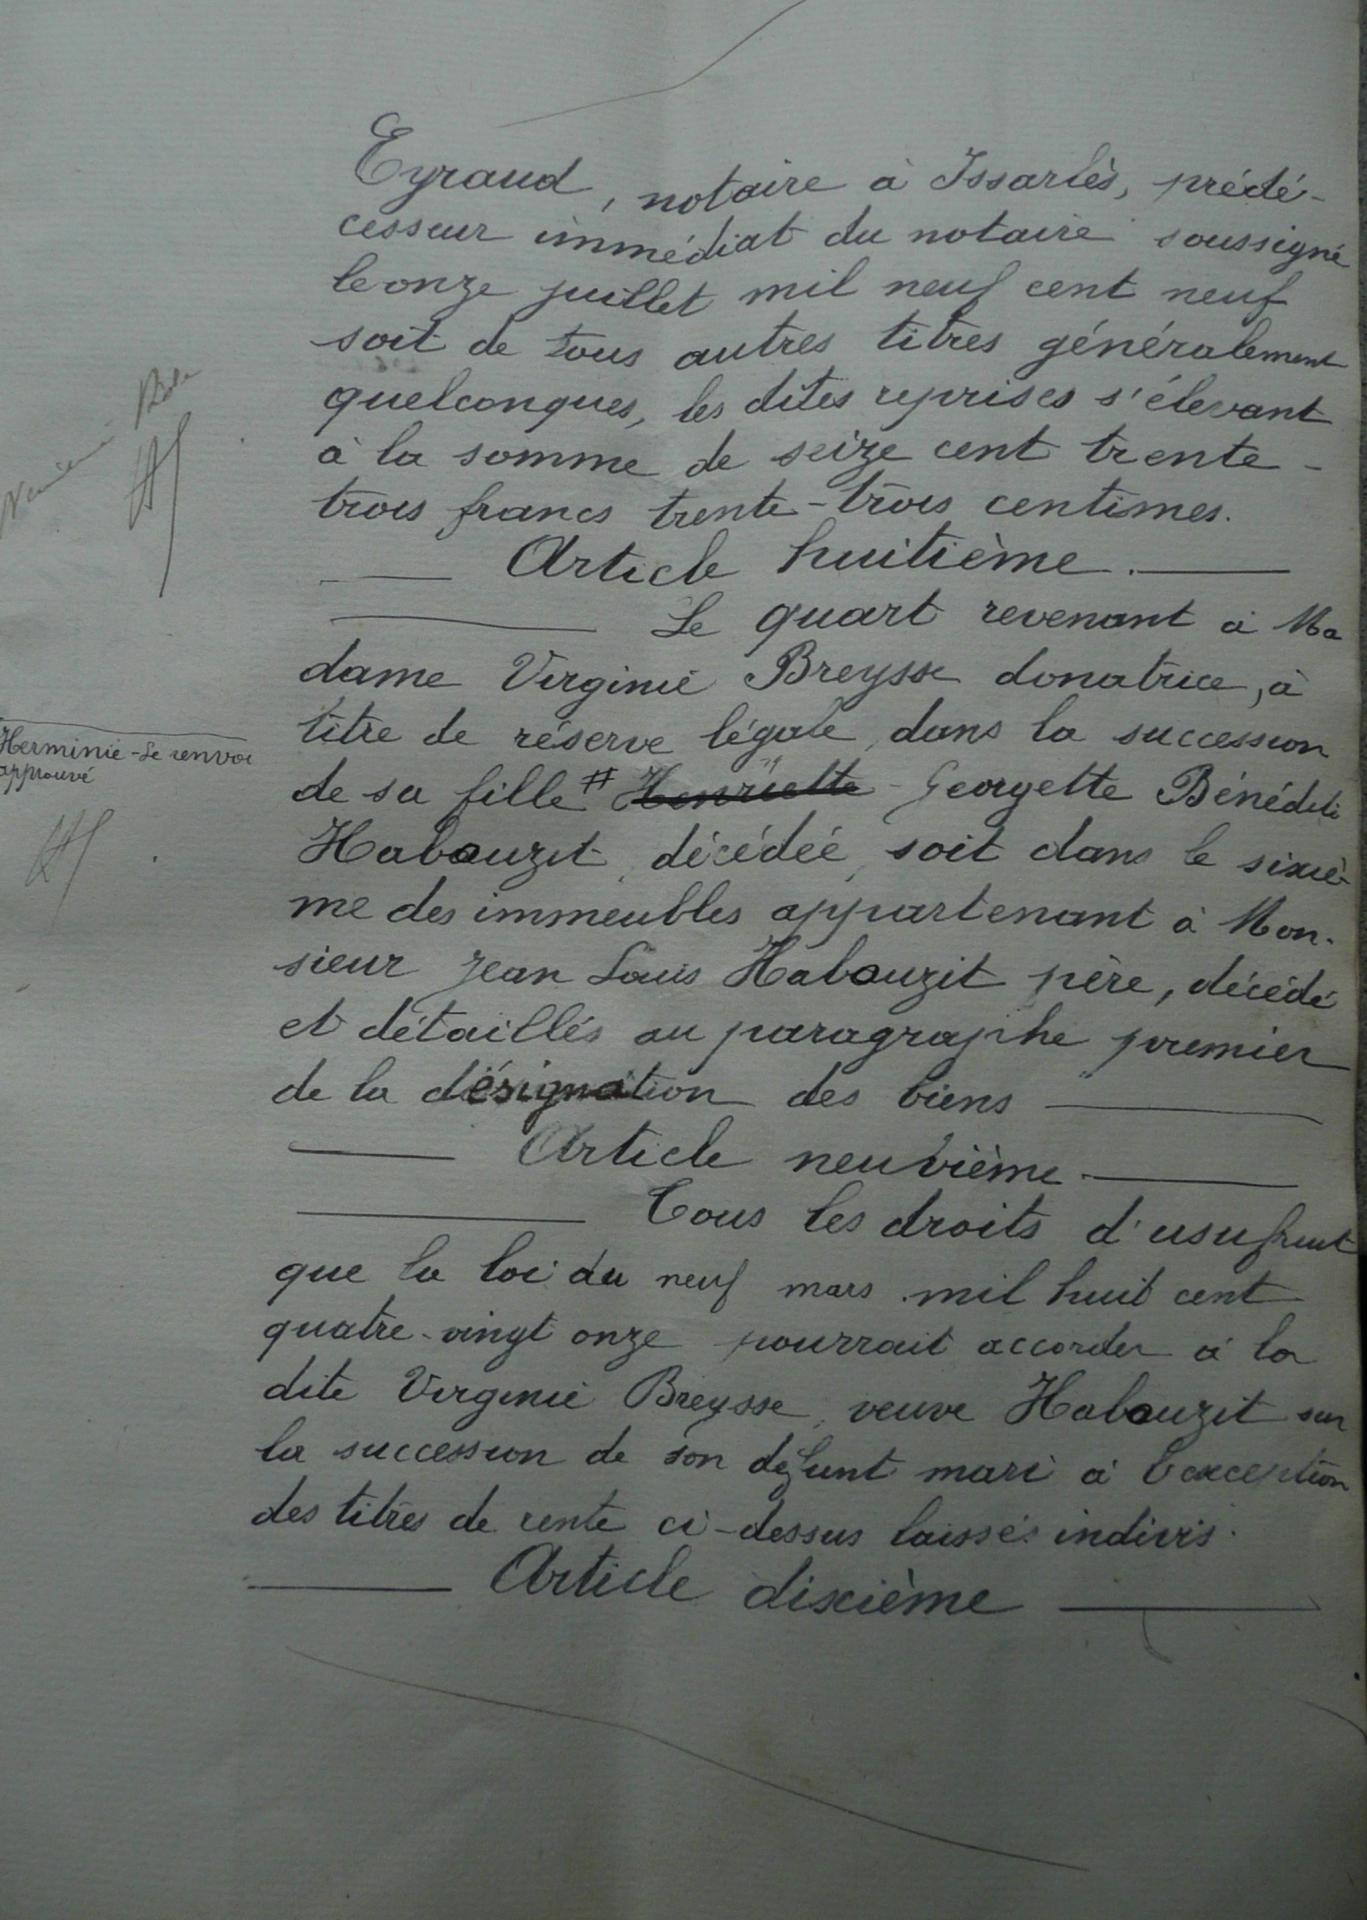 Eyraud, notaire à Issarlès, prédé-
cesseur immédiat du notaire soussigné
le onze juillet mil neuf cent neuf
soit de tous autres titres généralement
quelconques, les dites reprises s'élevant
à la somme de seize cent trente-
trois francs trente-trois centimes.
Article huitième.
Le quart revenant à Ma
dame Virginie Breysse donatrice, à
titre de réserve légale, dans la succession
Herminie - Le renvoi
approuvé
de sa fille # Henriette Georgette Bénédite
Habouzit, décédée, soit dans le sixiè-
me des immeubles appartenant à Mon-
sieur Jean Louis Habouzit père, décédé
et détaillés au paragraphe premier
de la désignation des biens
Article neuvième
Tous les droits d'usufruit
que la loi du neuf mars mil huit cent
quatre-vingt onze pourrait accorder à la
dite Virginie Breysse, veuve Habouzit sur
la succession de son défunt mari à l'exception
des titres de rente ci-dessus laissés indivis.
Article dixième